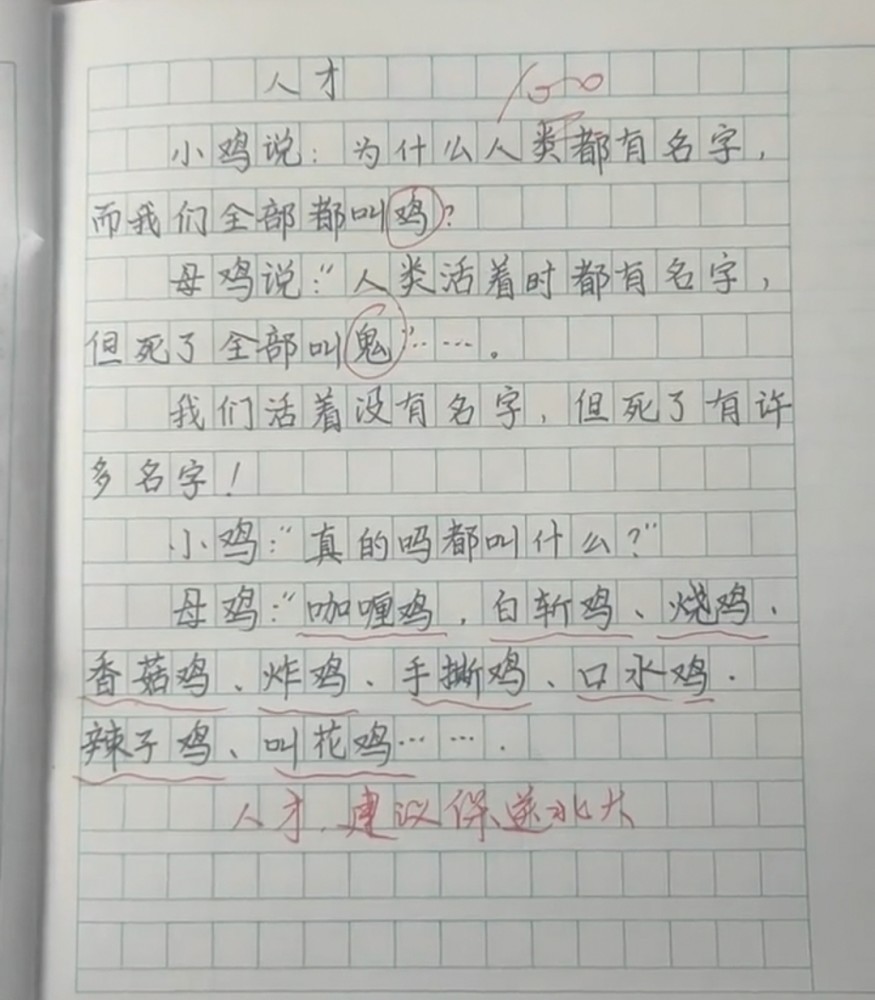 人才 100
小鸡说：为什么人类都有名字，
而我们全部都叫鸡？
母鸡说：“人类活着时都有名字，
但死了全部叫鬼”……。
我们活着没有名字，但死了有许
多名字！
小鸡：“真的吗都叫什么？”
母鸡：“咖喱鸡，白斩鸡、烧鸡、
香菇鸡、炸鸡、手撕鸡、口水鸡.
辣子鸡、叫花鸡…….
人才，建议保送北大